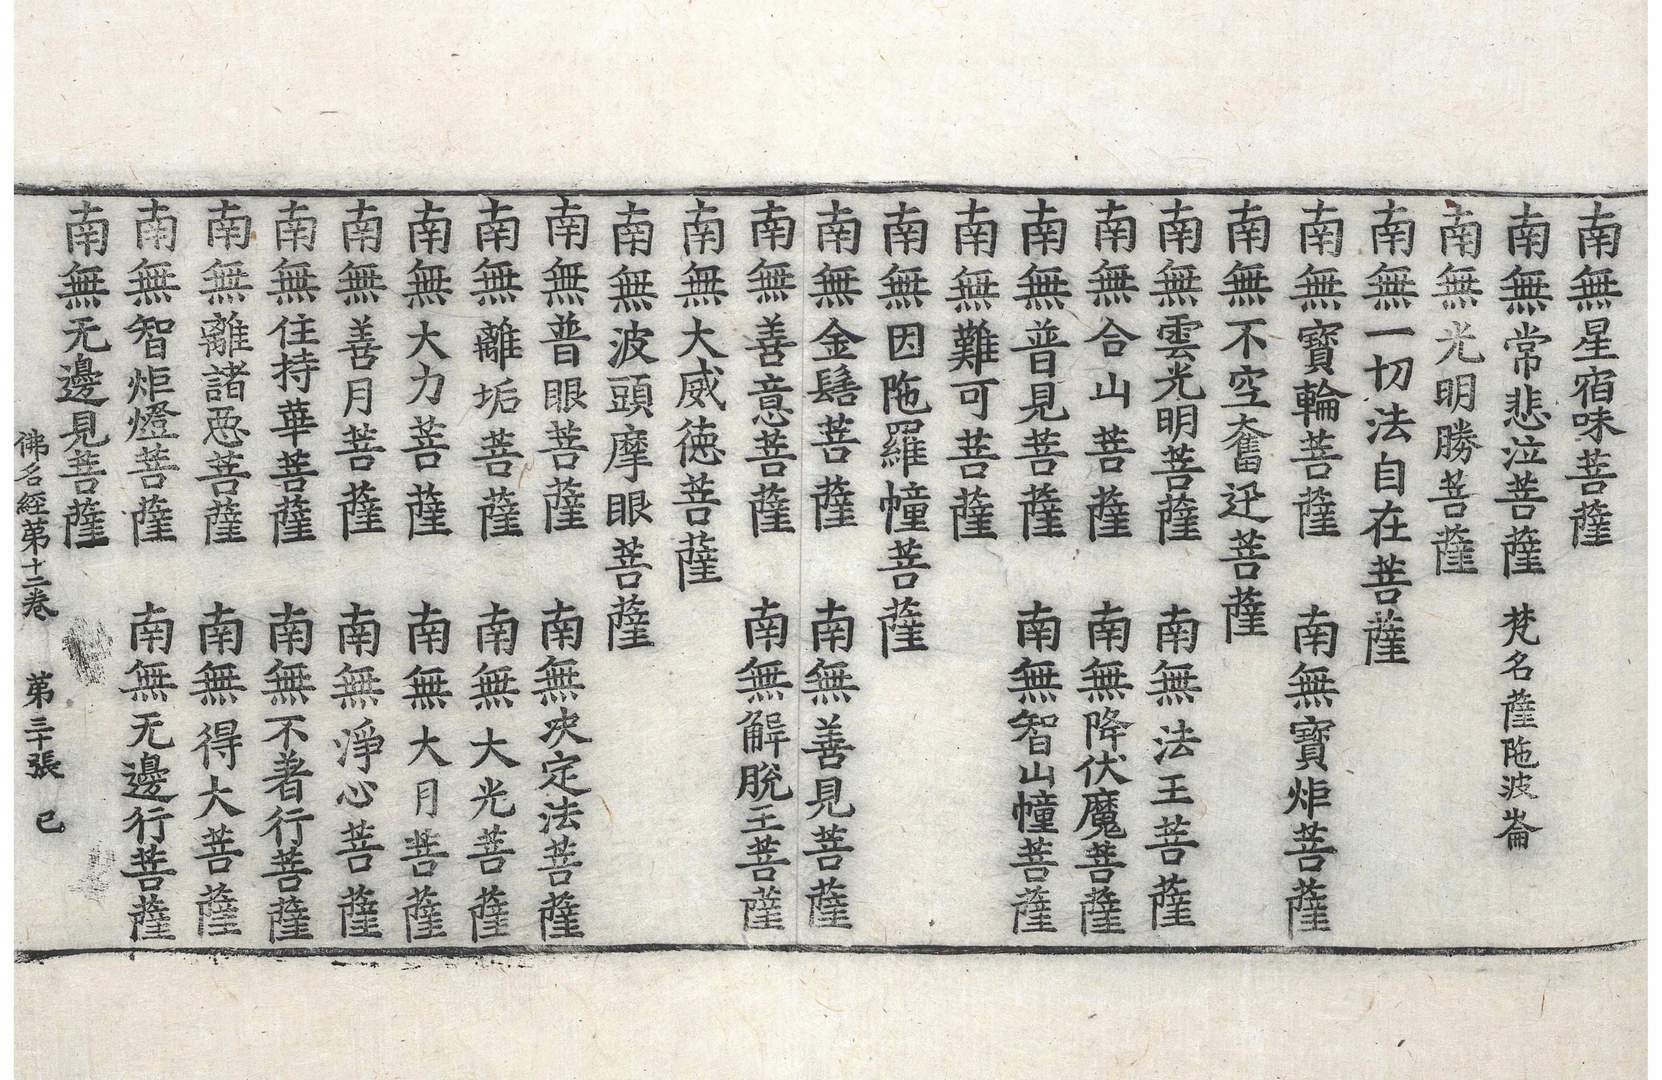 南無星宿味菩薩
南無常悲泣菩薩 梵名薩陁波崙
南無光明勝菩薩
南無一切法自在菩薩
南無寶輪菩薩 南無寶炬菩薩
南無不空奮迅菩薩
南無雲光明菩薩 南無法王菩薩
南無合山菩薩 南無降伏魔菩薩
南無普見菩薩 南無智山幢菩薩
南無難可菩薩
南無因陁羅幢菩薩
南無金髻菩薩 南無善見菩薩
南無善意菩薩 南無解脫王菩薩
南無大威徳菩薩
南無波頭摩眼菩薩
南無普眼菩薩 南無决定法菩薩
南無離垢菩薩 南無大光菩薩
南無大力菩薩 南無大月菩薩
南無善月菩薩 南無淨心菩薩
南無住持華菩薩 南無不著行菩薩
南無離諸惡菩薩 南無得大菩薩
南無智炬燈菩薩 南無无邊行菩薩
南無无邊見菩薩
佛名經苐十二卷 苐三十張 已